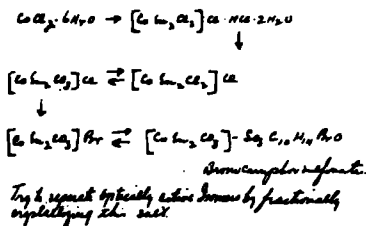 CoCl₂·6H₂O → [Co En₂ Cl₂] Cl · HCl · 2H₂O
↓
[Co En₂ CO₃] Cl ⇌ [Co En₂ Cl₂] Cl
↓
[Co En₂ CO₃] Br ⇌ [Co En₂ CO₃] – SO₃ C₁₀ H₁₄ Br O
Bromocamphor sulfonate.
Try to separate optically active Isomers by fractionally
crystallizing this salt.